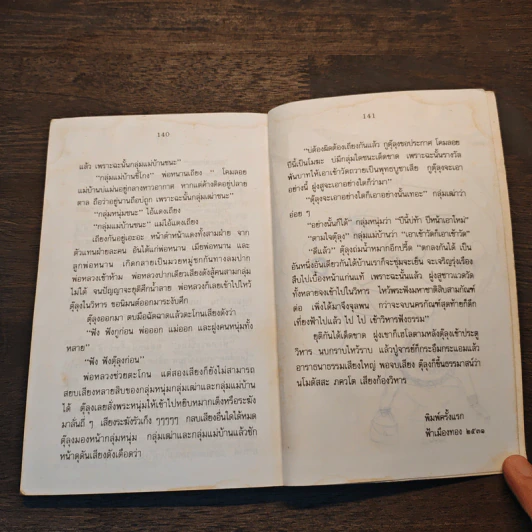 140
แล้ว เพราะฉะนั้นกลุ่มแม่บ้านชนะ"
"กลุ่มแม่บ้านขี้โกง" พ่อหนานเถียง " โคมลอย
แม่บ้านบ่แม่นอยู่กลางหาวอากาศ หากแต่ค้างติดอยู่ปลาย
ตาล ถือว่าอยู่นานถึงปลูก เพราะฉะนั้นกลุ่มเฒ่าชนะ"
"กลุ่มหนุ่มชนะ" ไอ้แดงเถียง
"กลุ่มแม่บ้านชนะ" แม่ไอ้แดงเถียง
เถียงกันอยู่เอะอะ หน้าดำหน้าแดงทั้งสามฝ่าย จาก
ตัวแทนฝ่ายละคน อันได้แก่พ่อหนาน เมียพ่อหนาน และ
ลูกพ่อหนาน เกิดกลายเป็นมวยหมู่ชกกันทางลมปาก
พ่อหลวงเข้าห้าม พ่อหลวงปากเดียวเสียงดังสู้คนสามกลุ่ม
ไม่ได้ จนปัญญาจะยุติศึกน้ำลาย พ่อหลวงก็เลยเข้าไปไหว้
ตุ๊ลุงในวิหาร ขอนิมนต์ออกมาระงับศึก
ตุ๊ลุงออกมา ตบมือฉัดฉาดแล้วตะโกนเสียงดังว่า
"ฟัง ฟังกูก่อน พ่อออก แม่ออก และฝูงคนหนุ่มทั้ง
หลาย"
"ฟัง ฟังตุ๊ลุงก่อน"
พ่อหลวงช่วยตะโกน แต่สองเสียงก็ยังไม่สามารถ
สยบเสียงหลายสิบของกลุ่มหนุ่มกลุ่มเฒ่าและกลุ่มแม่บ้าน
ได้ ตุ๊ลุงเลยสั่งพระหนุ่มให้เข้าไปหยิบหมากเติงหรือระฆัง
มาลั่นถี่ ๆ เสียงระฆังรัวเก๊ง ๆๆๆๆๆ กลบเสียงอื่นใดได้หมด
ตุ๊ลุงมองหน้ากลุ่มหนุ่ม กลุ่มเฒ่าและกลุ่มแม่บ้านแล้วชัก
หน้าดุดันเสียงดังเดือดว่า
141
"บ่ต้องผิดต้องเถียงกันแล้ว กูตุ๊ลุงขอประกาศ โคมลอย
ปีนี้เป็นโมฆะ บ่มีกลุ่มใดชนะเด็ดขาด เพราะฉะนั้นรางวัล
พันบาทให้เอาเข้าวัดถวายเป็นพุทธบูชาเสีย กูตุ๊ลุงจะเอา
อย่างนี้ ฝูงสูจะเอาอย่างใดก็ว่ามา"
"ตุ๊ลุงจะเอาอย่างใดก็เอาอย่างนั้นเทอะ" กลุ่มเฒ่าว่า
อ่อย ๆ
"อย่างนั้นก็ได้" กลุ่มหนุ่มว่า "ปีนี้บ่ท้า ปีหน้าเอาใหม่"
"ตามใจตุ๊ลุง" กลุ่มแม่บ้านว่า "เอาเข้าวัดก็เอาเข้าวัด"
"ดีแล้ว" ตุ๊ลุงถ่มน้ำหมากอีกเปรี๊ด "ตกลงกันได้ เป็น
อันหนึ่งอันเดียวกันได้บ้านเราก็จะชุ่มจะเย็น จะเจริญรุ่งเรือง
สืบไปเบื้องหน้าแก่นแท้ เพราะฉะนั้นแล้ว ฝูงสูชาวแวดวัด
ทั้งหลายจงเข้าไปในวิหาร ไหว้พระฟังมหาชาติสิบสามกัณฑ์
ต่อ เพิ่งได้มาจึงจุลพน กว่าจะจบนครกัณฑ์สุดท้ายก็ดึก
เที่ยงฟ้าไปแล้ว ไป ไป เข้าวิหารฟังธรรม"
ยุติกันได้เด็ดขาด ฝูงเขาก็เฮโลตามหลังตุ๊ลุงเข้าประตู
วิหาร นบกราบไหว้ราบ แล้วปู่จารย์ก็กระอื้มกระแอมแล้ว
อาราธนาธรรมเสียงใหญ่ พอจบเสียง ตุ๊ลุงก็ขึ้นธรรมาสน์ว่า
นโมตัสสะ ภควโต เสียงก้องวิหาร
พิมพ์ครั้งแรก
ฟ้าเมืองทอง ๒๕๓๑